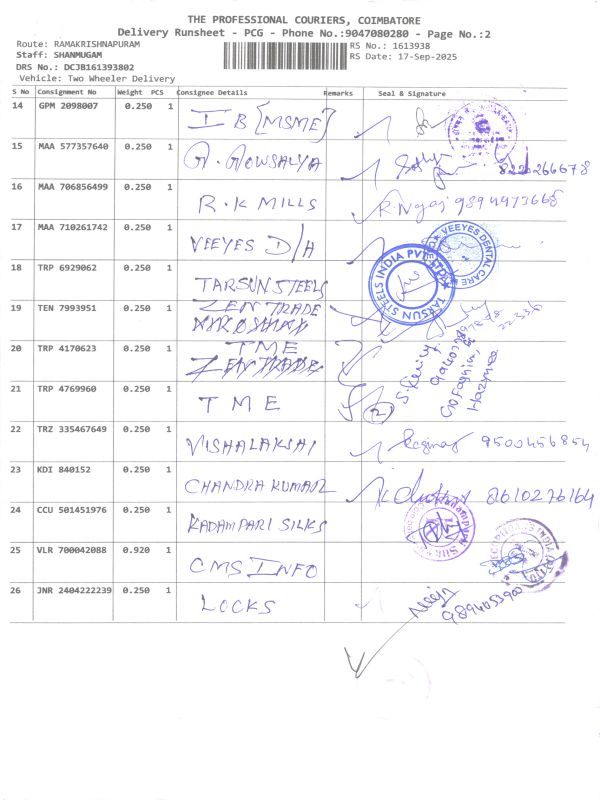 THE PROFESSIONAL COURIERS, COIMBATORE
Delivery Runsheet - PCG - Phone No.:9047080280 - Page No.:2
Route: RAMAKRISHNAPURAM
Staff: SHANMUGAM
DRS No.: DCJB161393802
Vehicle: Two Wheeler Delivery
RS No.: 1613938
RS Date: 17-Sep-2025
S No Consignment No Weight PCS Consignee Details Remarks Seal & Signature
14 GPM 2098007 0.250 1 I B [MSME]
15 MAA 577357640 0.250 1 G. GOWSALYA 8220266678
16 MAA 706856499 0.250 1 R.K MILLS 9894473668
17 MAA 710261742 0.250 1 VEEYES D/H
VEEYES DENTAL CARE
18 TRP 6929062 0.250 1 TARSUN STEELS
TARSUN STEELS INDIA PVT LTD
19 TEN 7993951 0.250 1 ZEN TRADE
20 TRP 4170623 0.250 1 TME
ZEN TRADE
21 TRP 4769960 0.250 1 TME
2
22 TRZ 335467649 0.250 1 VISHALAKSAI 9500456854
23 KDI 840152 0.250 1 CHANDRA KUMAR 8610276164
24 CCU 501451976 0.250 1 KADAMPARI SILKS
25 VLR 700042088 0.920 1 CMS INFO
26 JNR 2404222239 0.250 1 LOCKS 9894053900